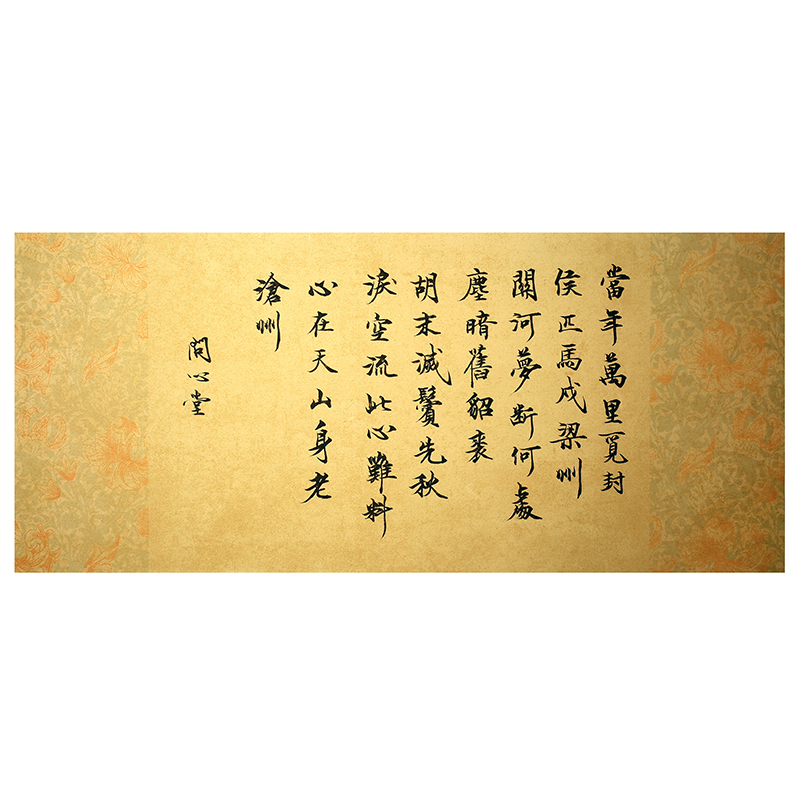 當年萬里覓封
侯匹馬戍梁州
關河夢断何處
塵暗舊貂裘
胡未滅鬢先秋
淚空流此心難料
心在天山身老
滄州
問心堂